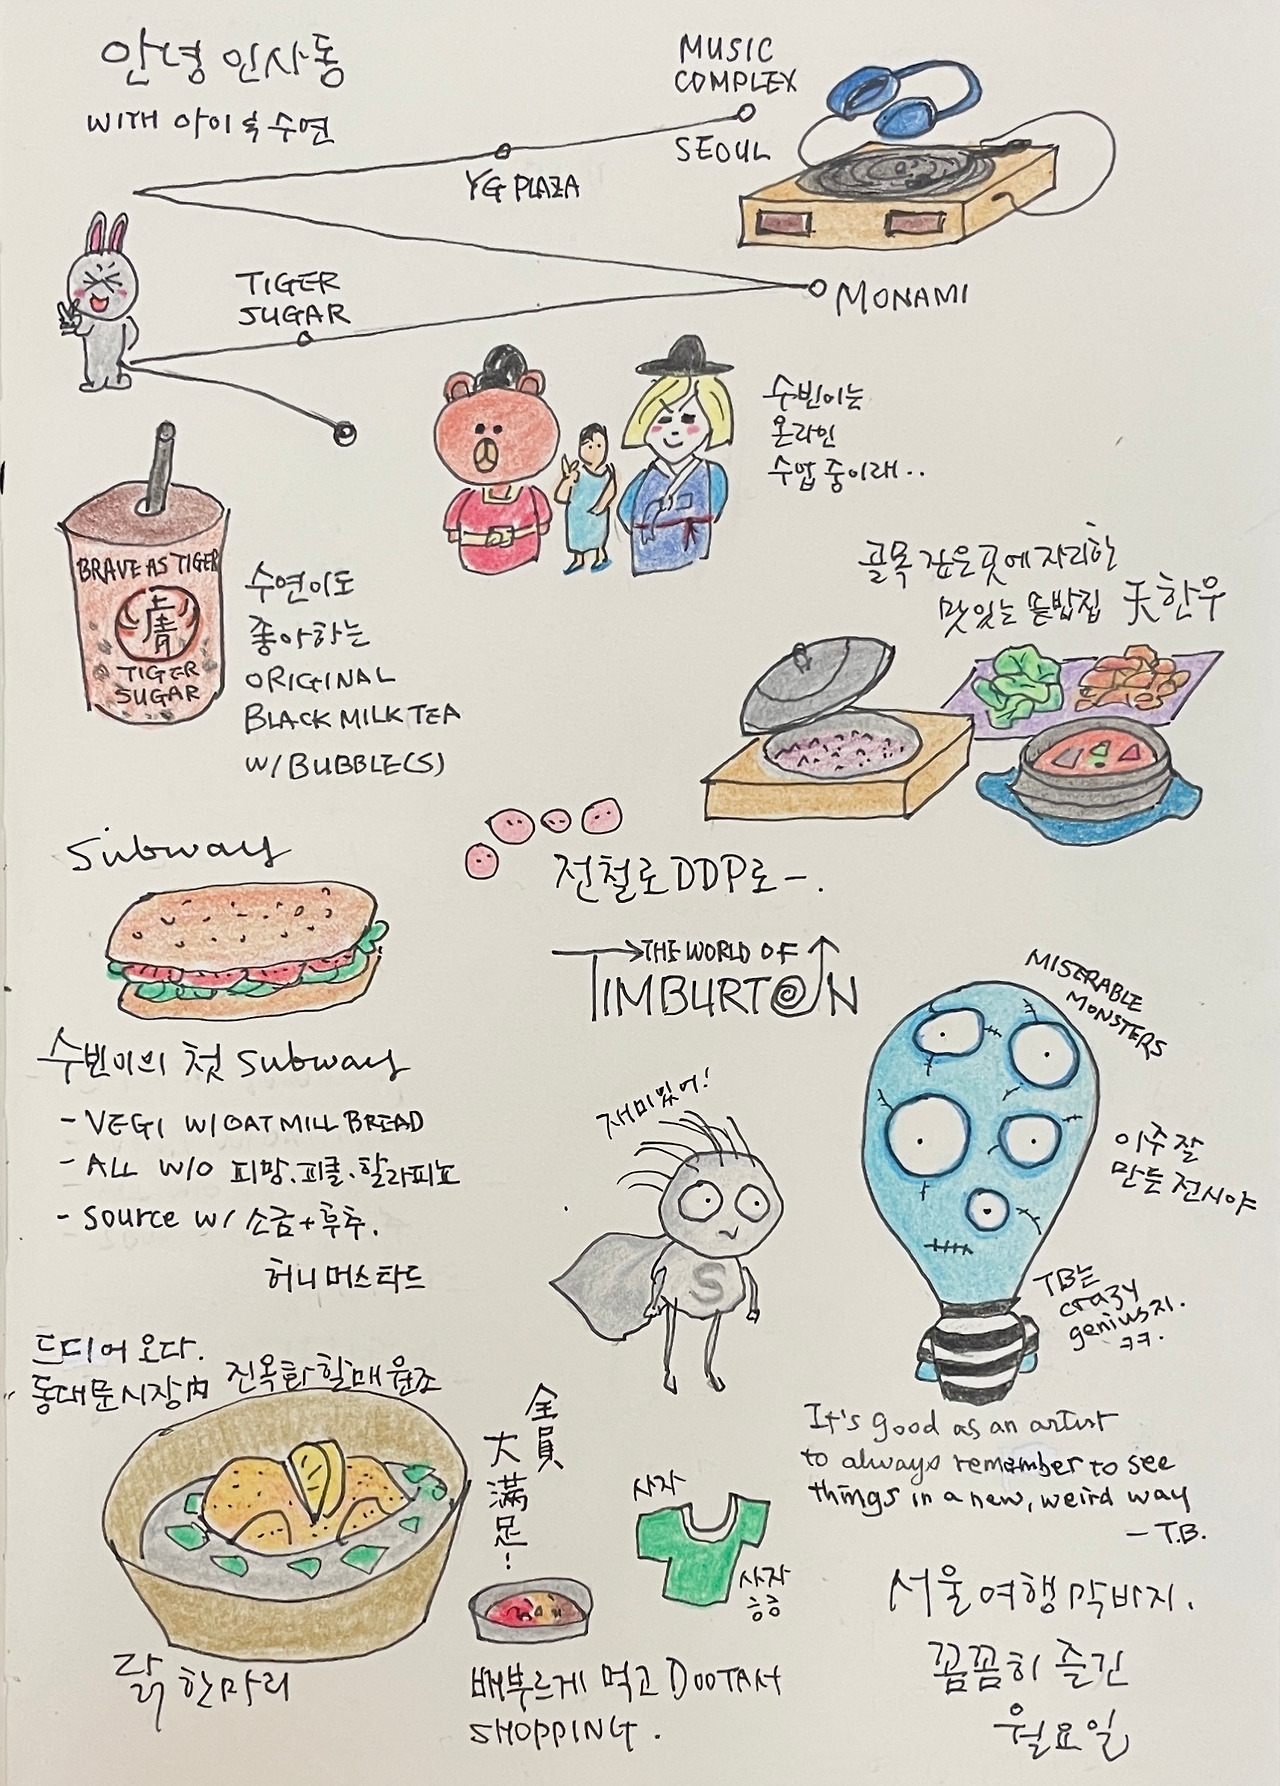 안녕 인사동
WITH 아이 & 수연
MUSIC
COMPLEX
SEOUL
YG PLAZA
TIGER
SUGAR
MONAMI
수빈이는
온라인
수업 중이래..
BRAVE AS TIGER
TIGER
SUGAR
수연이도
좋아하는
ORIGINAL
BLACK MILK TEA
W/ BUBBLE(S)
골목 깊은 곳에 자리한
맛있는 솥밥집 天한우
전철로 DDP로 -.
Subway
수빈이의 첫 Subway
- VEGI W/ OAT MILL BREAD
- ALL W/O 피망.피클.할라피뇨
- Source w/ 소금+후추.
허니 머스타드
THE WORLD OF
TIMBURTON
MISERABLE
MONSTERS
재미있어!
S
아주 잘
만든 전시야
TB는
crazy
genius지.
ㅋㅋ.
It's good as an artist
to always remember to see
things in a new, weird way
- T.B.
드디어 오다.
동대문시장內 진옥화할매 원조
닭 한마리
全員
大満足!
사자
사자
ㅎㅎ
배부르게 먹고 DOOTAH
SHOPPING.
서울여행 막바지.
꼼꼼히 즐긴
월요일